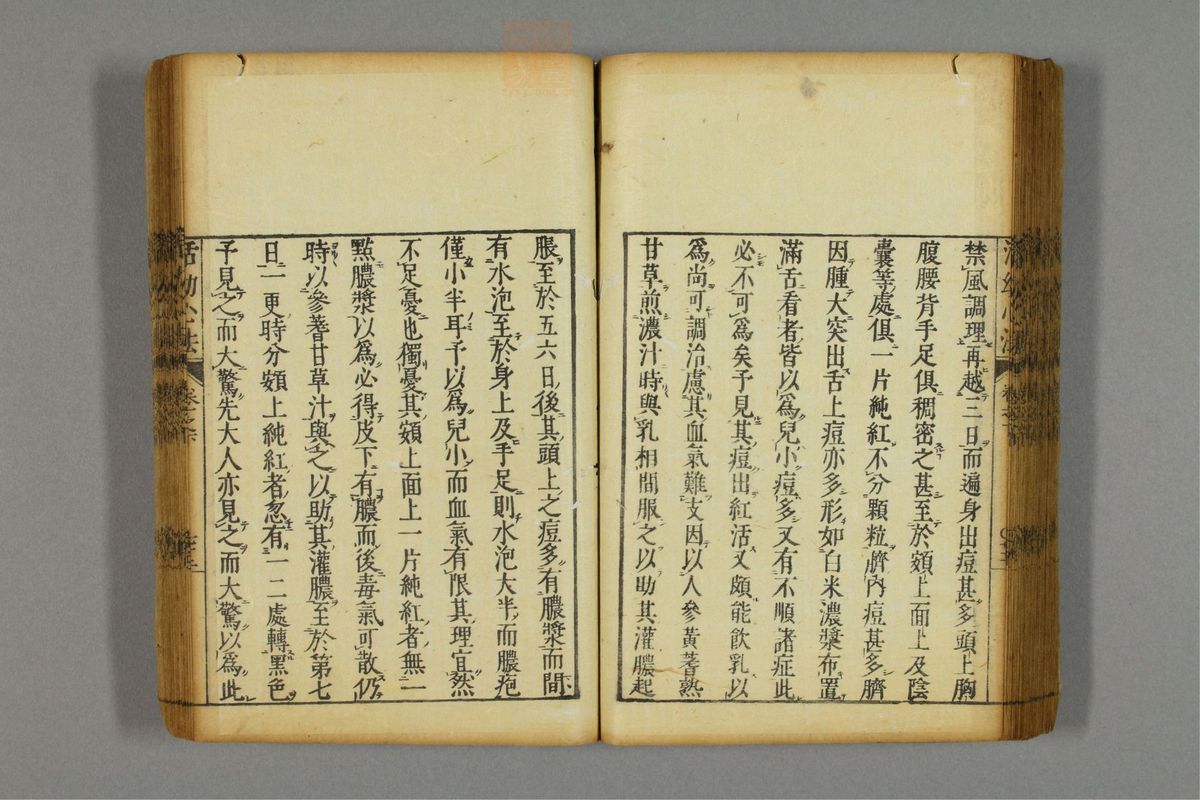 禁風調理再越三日而遍身出痘甚多頭上胸
腹腰背手足俱稠密之甚至於頦上面上及陰
囊等處俱一片純紅不分顆粒臍內痘甚多臍
因腫大突出舌上痘亦多形如白米濃漿布置
滿舌看者皆以爲兒小痘多又有不順諸症此
必不可爲矣予見其痘出紅活又頗能飲乳以
爲尚可調治慮其血氣難支因以人參黃蓍熟
甘草煎濃汁時與乳相間服之以助其灌膿起
脹至於五六日後其頭上之痘多有膿漿而間
有水泡至於身上及手足則水泡大半而膿疱
僅小半耳予以爲兒小而血氣有限其理宜然
不足憂也獨憂其頦上面上一片純紅者無一
點膿漿以爲必得皮下有膿而後毒氣可散仍
時以參蓍甘草汁與之以助其灌膿至於第七
日一更時分頦上純紅者忽有一二處轉黑色
予見之而大驚先大人亦見之而大驚以爲此
活幼心法